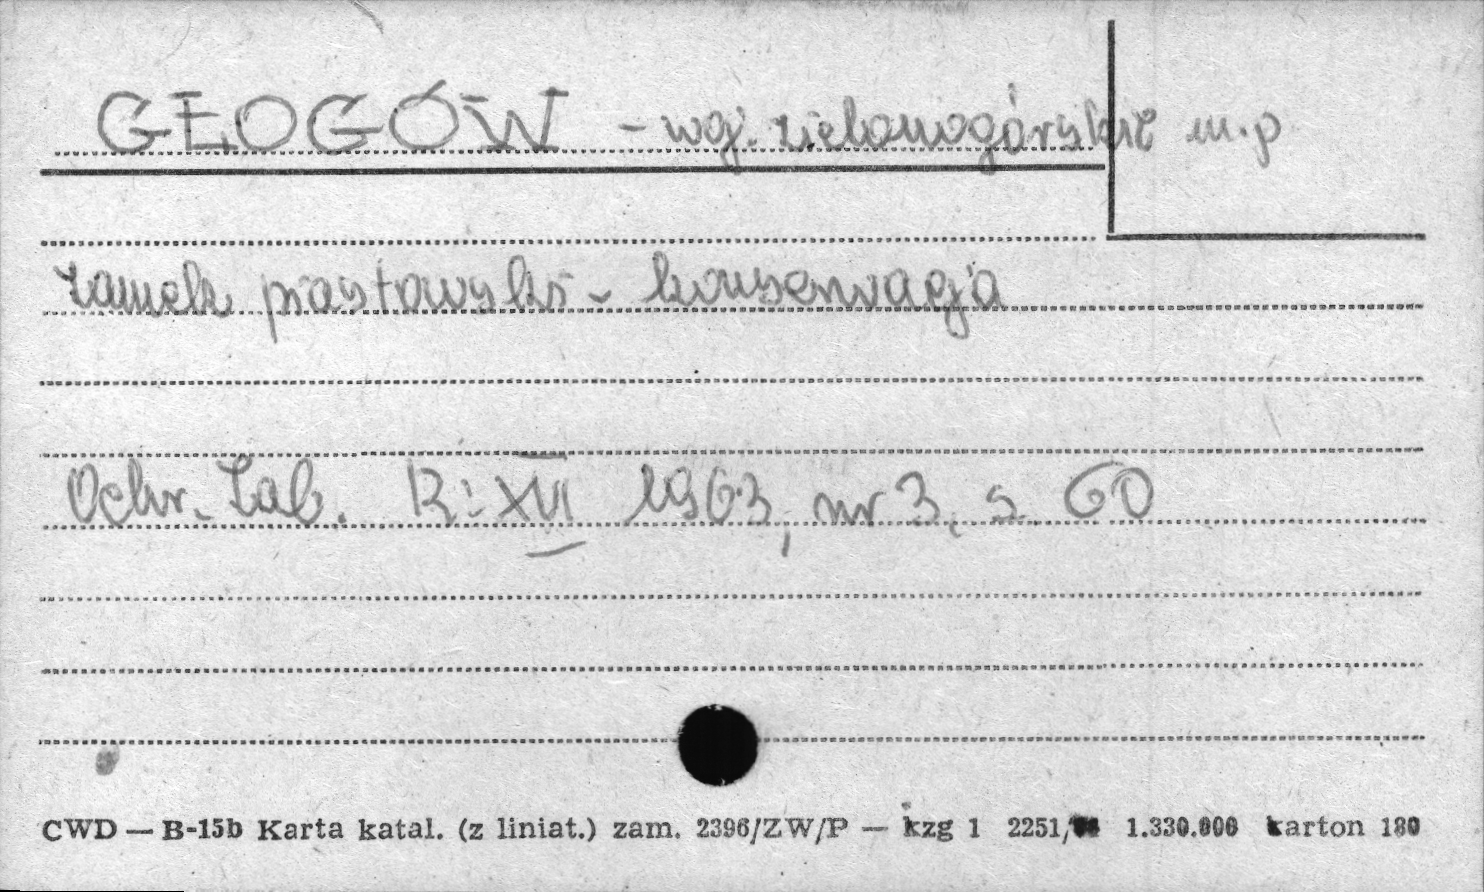 GŁOGÓW - woj. zielonogórskie m.p
zamek piastowski - konserwacja
Ochr. Zab. R: XVI 1963, nr 3, s. 60
CWD — B-15b Karta katal. (z liniat.) zam. 2396/ZW/P — kzg 1 2251/ 1.330.000 karton 180